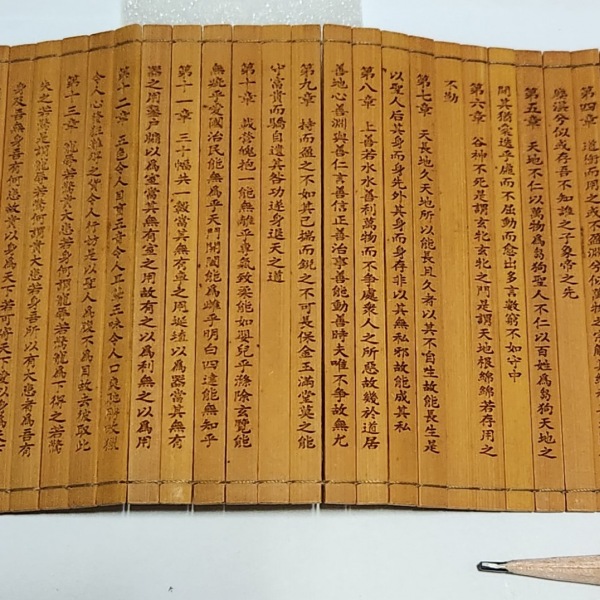 第四章 道衝而用之或不盈淵兮似萬物之宗解其紛
塵湛兮似或存吾不知誰之子象帝之先
第五章 天地不仁以萬物為芻狗聖人不仁以百姓為芻狗天地之
間其猶橐籥乎虛而不屈動而愈出多言數窮不如守中
第六章 谷神不死是謂玄牝玄牝之門是謂天地根綿綿若存用之
不勤
第七章 天長地久天地所以能長且久者以其不自生故能長生是
以聖人后其身而身先外其身而身存非以其無私邪故能成其私
第八章 上善若水水善利萬物而不爭處衆人之所惡故幾於道居
善地心善淵與善仁言善信正善治事善能動善時夫唯不爭故無尤
第九章 持而盈之不如其已揣而銳之不可長保金玉滿堂莫之能
守富貴而驕自遺其咎功遂身退天之道
第十章 載營魄抱一能無離乎專氣致柔能如嬰兒乎滌除玄覽能
無疵乎愛國治民能無為乎天門開闔能為雌乎明白四達能無知乎
第十一章 三十幅共一轂當其無有車之用埏埴以為器當其無有
器之用鑿戶牖以為室當其無有室之用故有之以為利無之以為用
第十二章 五色令人目盲五音令人耳聾五味令人口爽馳騁畋獵
令人心發狂難得之貨令人行妨是以聖人為腹不為目故去彼取此
第十三章 寵辱若驚貴大患若身何謂寵辱若驚寵為下得之若驚
失之若驚是謂寵辱若驚何謂貴大患若身吾所以有大患者為吾有
身及吾無身吾有何患故貴以身為天下若可寄天下愛以身為天下